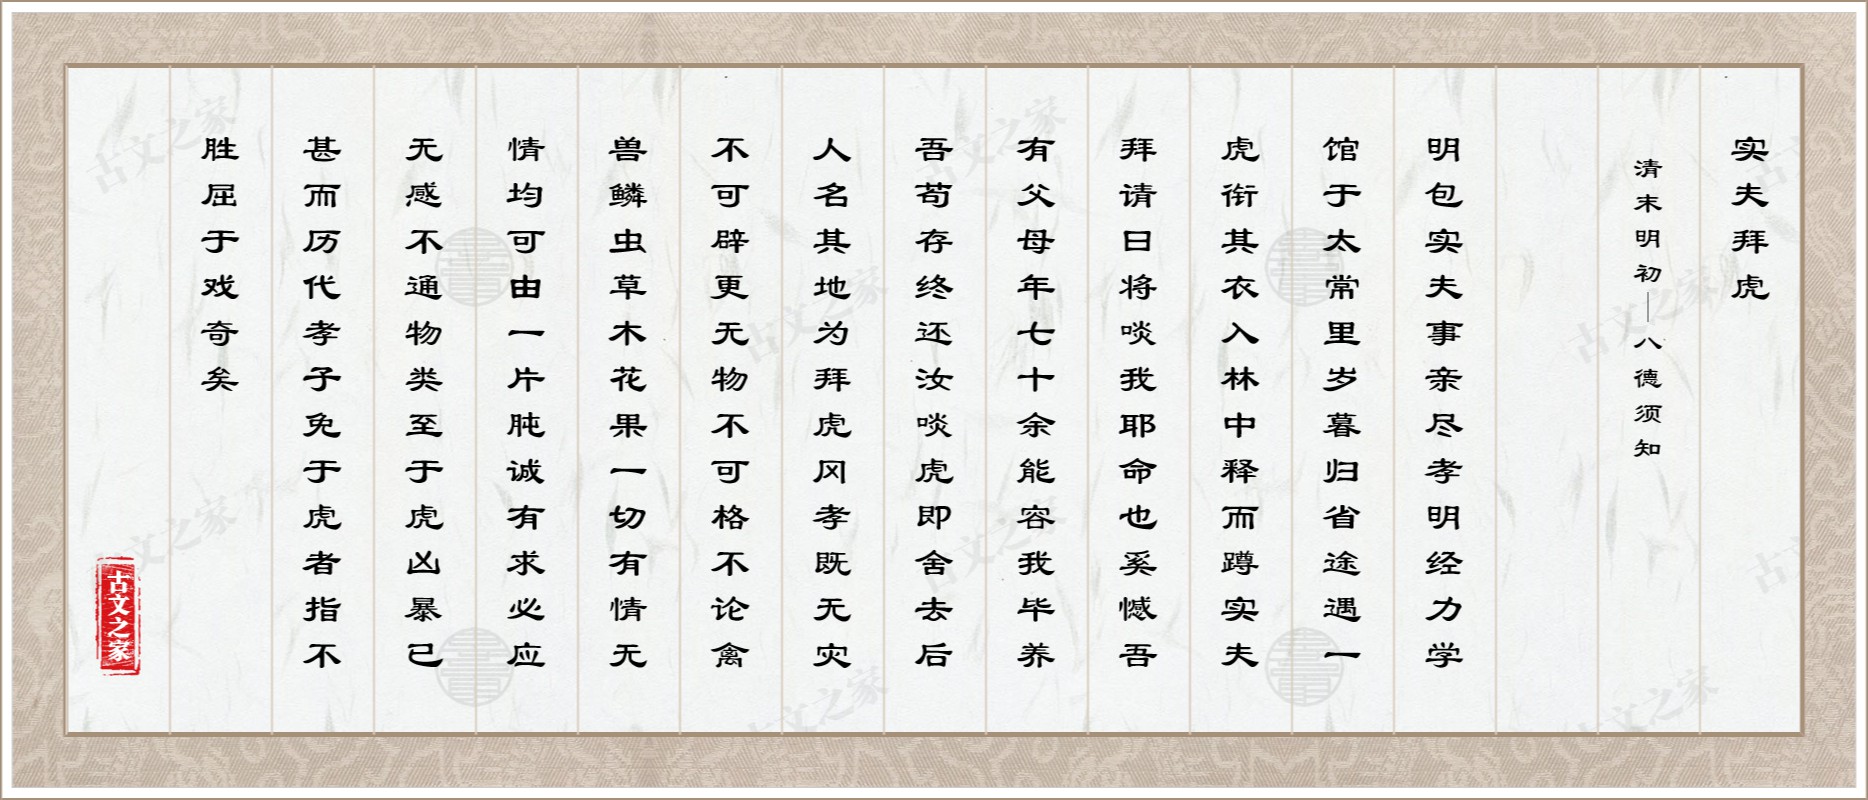 实夫拜虎
清末明初—八德须知
明包实夫事亲尽孝明经力学
馆于太常里岁暮归省途遇一
虎衔其衣入林中释而蹲实夫
拜请曰将啖我耶命也奚憾吾
有父母年七十余能容我毕养
吾苟存终还汝啖虎即舍去后
人名其地为拜虎冈孝既无灾
不可辟更无物不可格不论禽
兽鳞虫草木花果一切有情无
情均可由一片肫诚有求必应
无感不通物类至于虎凶暴已
甚而历代孝子免于虎者指不
胜屈于戏奇矣
古文之家